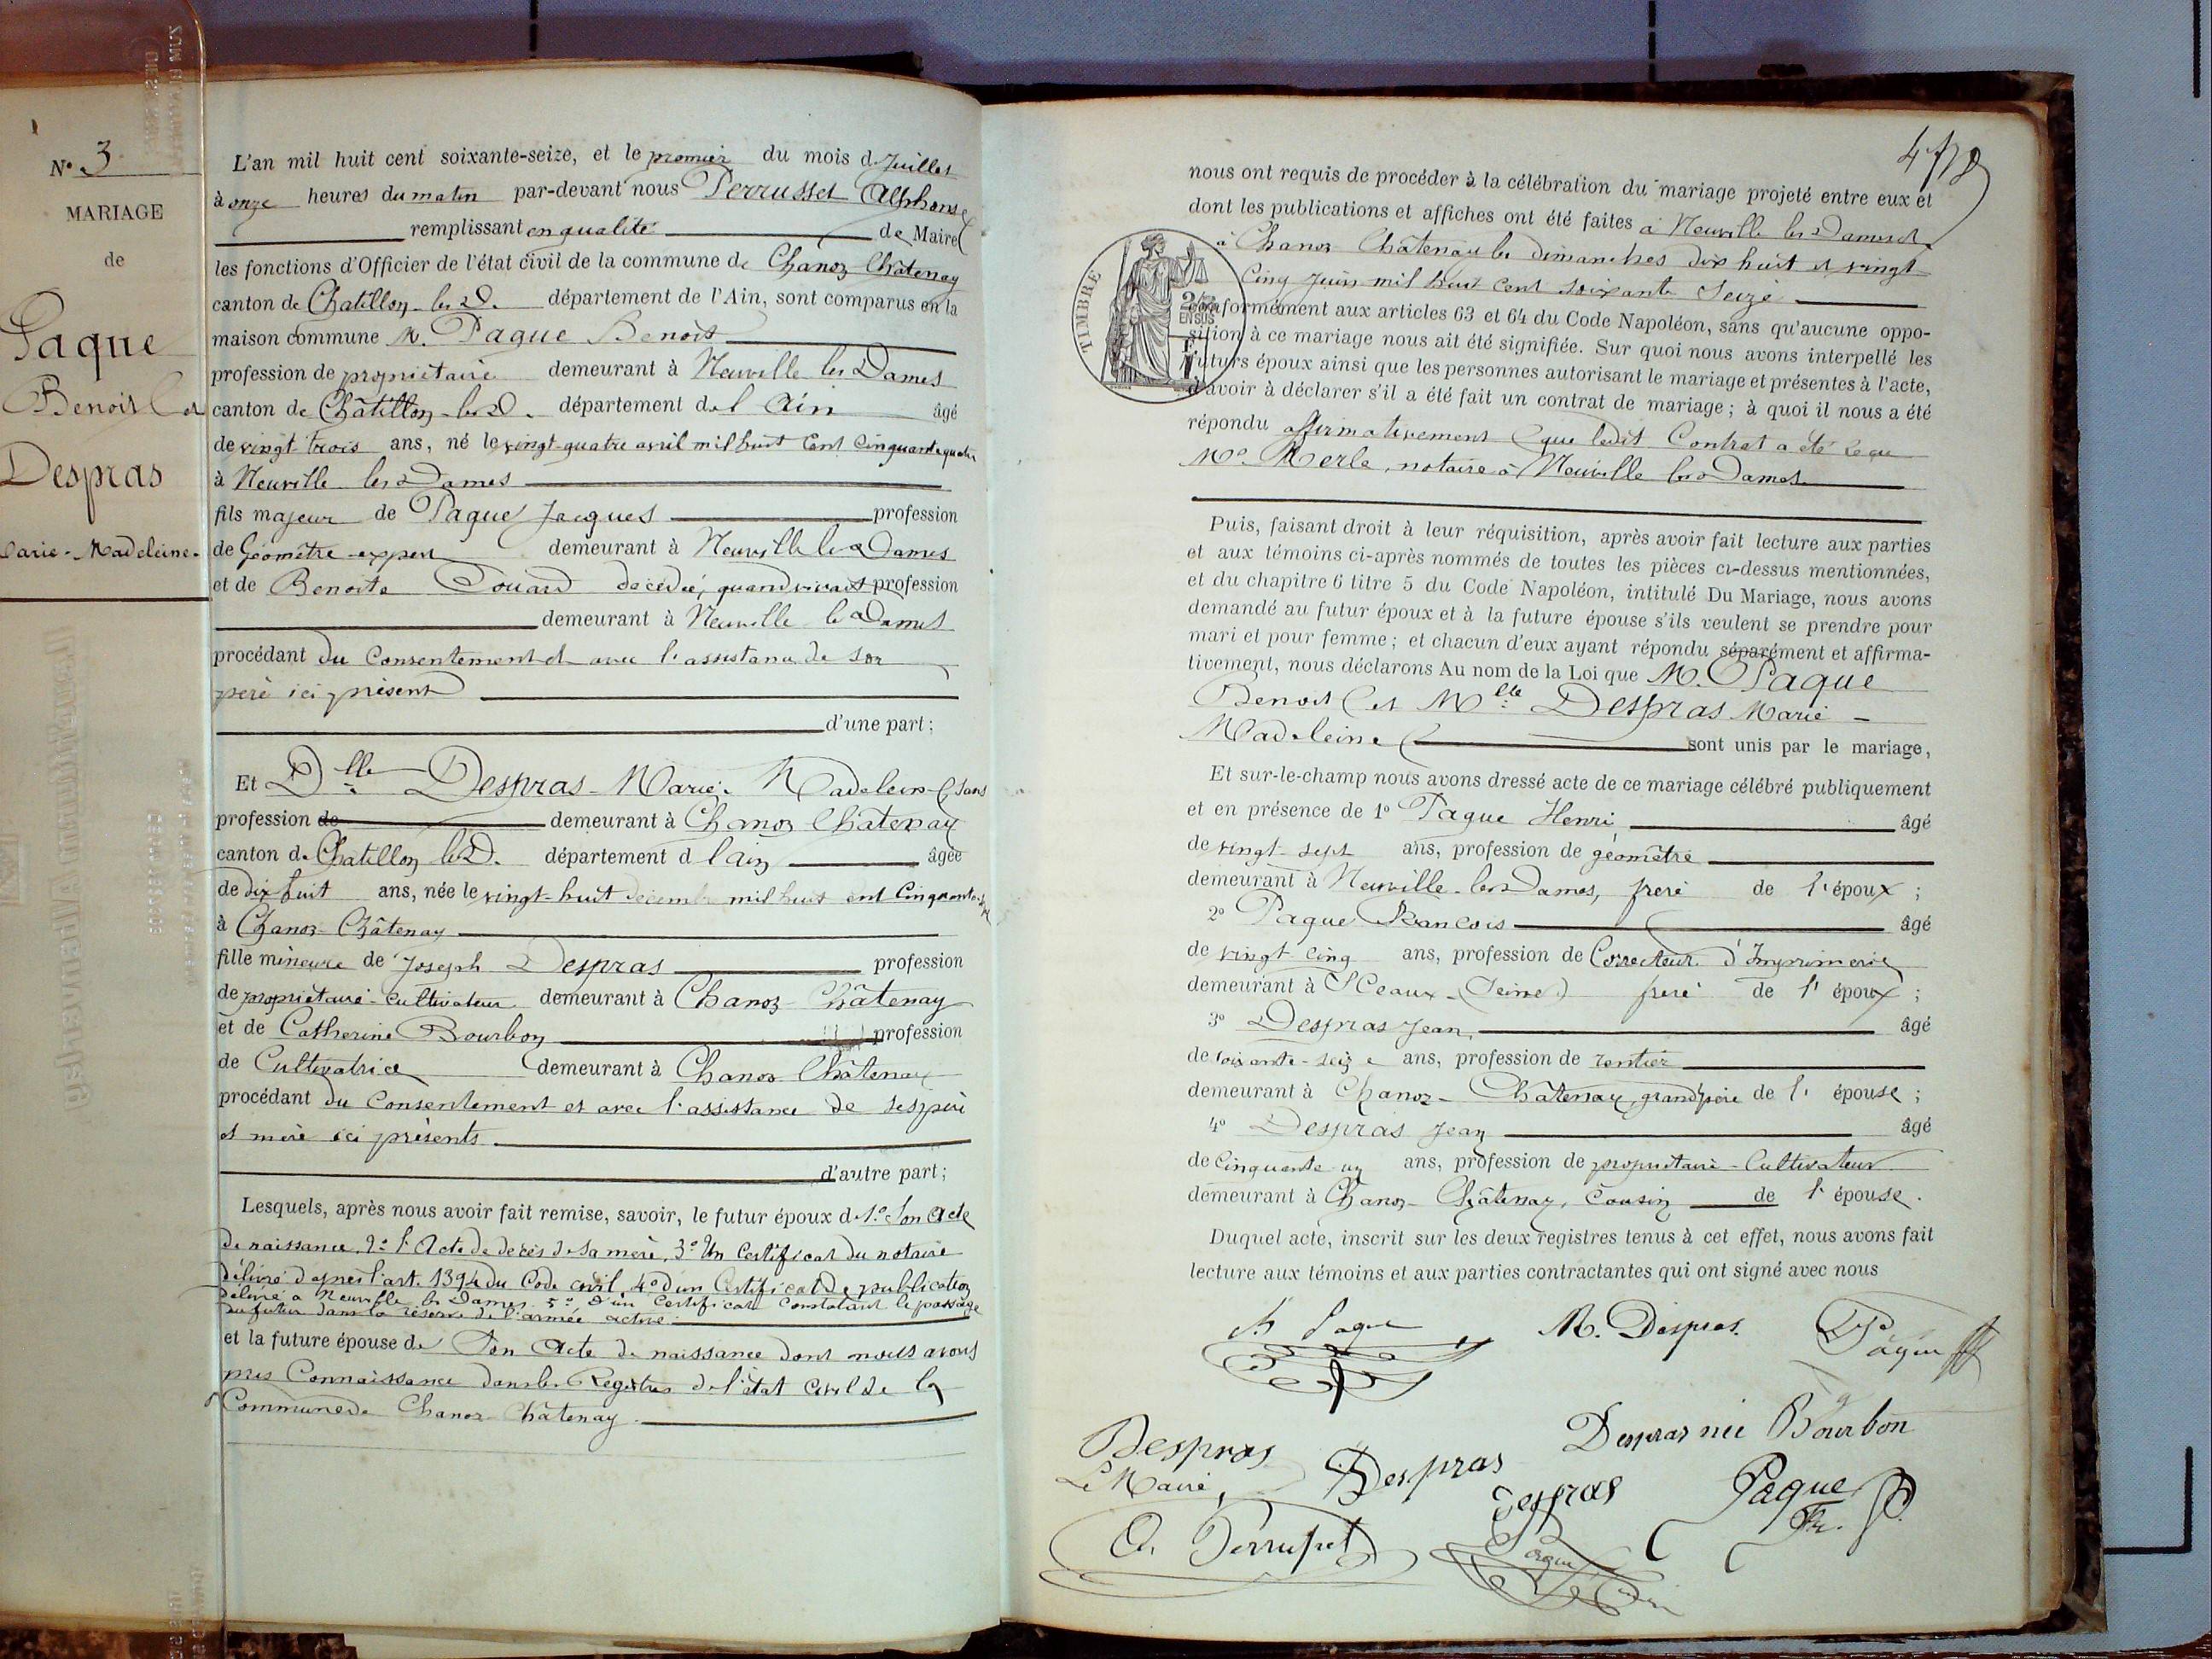 N° 3
MARIAGE
de
Paque
Benoit et
Despras
Marie-Madeleine.
L'an mil huit cent soixante-seize, et le premier du mois d Juillet
à onze heures du matin par-devant nous Perrusset Alphonse
remplissant en qualité de Maire
les fonctions d'Officier de l'état civil de la commune de Chanoz Châtenay
canton de Chatillon-les-D. département de l'Ain, sont comparus en la
maison commune M. Paque Benoit
profession de propriétaire demeurant à Neuville les Dames
canton de Châtillon-les-D. département de l Ain âgé
de vingt trois ans, né le vingt-quatre avril mil huit Cent Cinquante quatre
à Neuville les Dames
fils majeur de Paque Jacques profession
de Géomètre-expert demeurant à Neuville les Dames
et de Benoite Douard décédée, quand vivait profession
demeurant à Neuville les Dames
procédant du Consentement et avec l'assistance de son
père ici présent
d'une part;
Et Dlle Despras Marie-Madeleine sans
profession de demeurant à Chanoz Châtenay
canton de Chatillon les D. département d l'Ain âgée
de dix huit ans, née le vingt-huit décembre mil huit cent Cinquante-sept
à Chanoz-Châtenay
fille mineure de Joseph Despras profession
de propriétaire-Cultivateur demeurant à Chanoz-Châtenay
et de Catherine Bourbon profession
de Cultivatrice demeurant à Chanoz Châtenay
procédant du Consentement et avec l'assistance de ses père
et mère ici présents.
d'autre part;
Lesquels, après nous avoir fait remise, savoir, le futur époux de 1.° Son Acte
de naissance, 2° l'Acte de décès de sa mère, 3° Un Certificat du notaire
délivré d'après l'art. 1394 du Code civil, 4° d'un Certificat de publication
délivré à Neuville les Dames 5° d'un Certificat Constatant le passage
du futur dans la réserve de l'armée active.
et la future épouse de Son Acte de naissance dont nous avons
pris Connaissance dans les Registres de l'état Civil de la
Commune de Chanoz-Châtenay.
478
nous ont requis de procéder à la célébration du mariage projeté entre eux et
dont les publications et affiches ont été faites à Neuville les Dames et
à Chanoz-Châtenay les dimanches dix huit et vingt
Cinq Juin mil huit Cent soixante Seize
TIMBRE
EN SUS
conformément aux articles 63 et 64 du Code Napoléon, sans qu'aucune oppo-
sition à ce mariage nous ait été signifiée. Sur quoi nous avons interpellé les
futurs époux ainsi que les personnes autorisant le mariage et présentes à l'acte,
d'avoir à déclarer s'il a été fait un contrat de mariage; à quoi il nous a été
répondu affirmativement que ledit Contrat a été reçu
Me. Merle, notaire à Neuville les Dames
Puis, faisant droit à leur réquisition, après avoir fait lecture aux parties
et aux témoins ci-après nommés de toutes les pièces ci-dessus mentionnées,
et du chapitre 6 titre 5 du Code Napoléon, intitulé Du Mariage, nous avons
demandé au futur époux et à la future épouse s'ils veulent se prendre pour
mari et pour femme; et chacun d'eux ayant répondu séparément et affirma-
tivement, nous déclarons Au nom de la Loi que M. Paque
Benoit et Mlle Despras Marie-
Madeleine sont unis par le mariage,
Et sur-le-champ nous avons dressé acte de ce mariage célébré publiquement
et en présence de 1° Paque Henri âgé
de vingt-sept ans, profession de géomètre
demeurant à Neuville-les-Dames, frère de l'époux;
2° Paque François âgé
de vingt Cinq ans, profession de Correcteur d'Imprimerie
demeurant à SCeaux-(Seine) frère de l'époux;
3° Despras Jean âgé
de soixante-seize ans, profession de rentier
demeurant à Chanoz-Châtenay, grand'père de l'épouse;
4° Despras Jean âgé
de Cinquante un ans, profession de propriétaire-Cultivateur
demeurant à Chanoz-Châtenay, Cousin de l'épouse.
Duquel acte, inscrit sur les deux registres tenus à cet effet, nous avons fait
lecture aux témoins et aux parties contractantes qui ont signé avec nous
Paque M. Despras. Paque
Despras Despras Despras née Bourbon
Le Maire, Despras Paque Fr.
A. Perrusset Paque